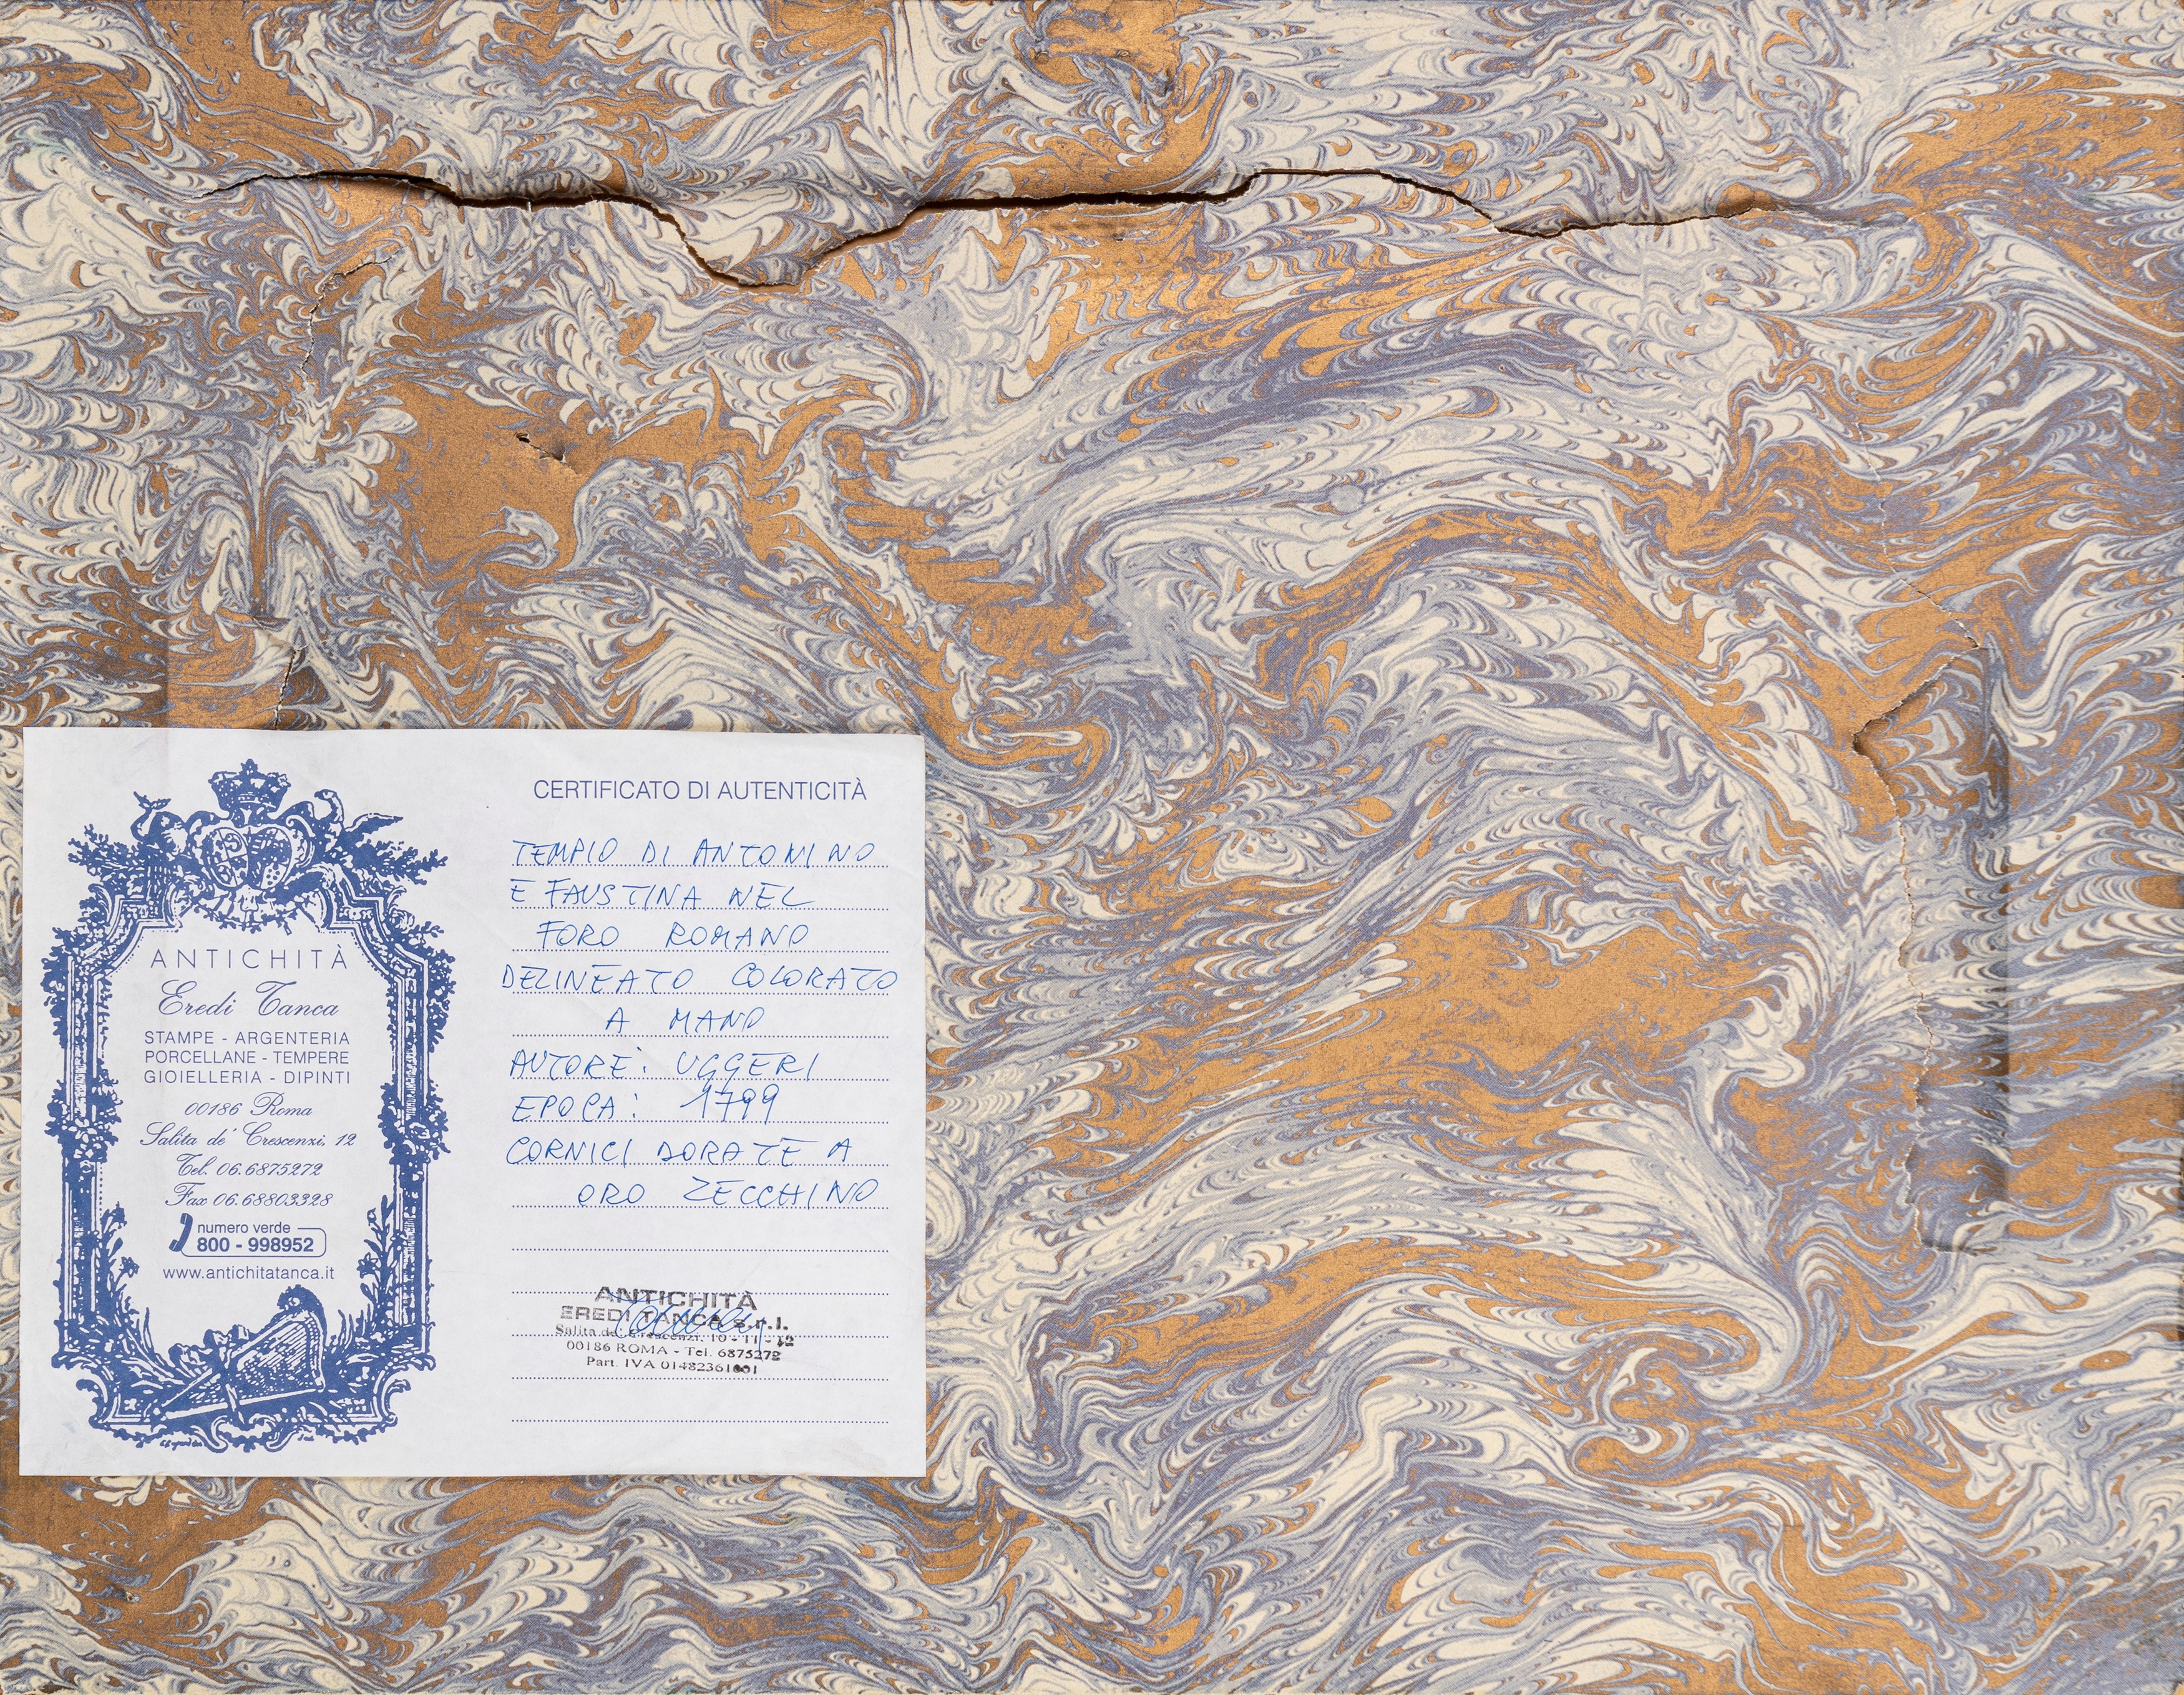 ANTICHITÀ
Eredi Tanca
STAMPE - ARGENTERIA
PORCELLANE - TEMPERE
GIOIELLERIA - DIPINTI
00186 Roma
Salita de' Crescenzi, 12
Tel. 06.6875272
Fax 06.68803328
numero verde
800 - 998952
www.antichitatanca.it
CERTIFICATO DI AUTENTICITÀ
TEMPIO DI ANTONINO
E FAUSTINA NEL
FORO ROMANO
DELINEATO COLORATO
A MANO
AUTORE: UGGERI
EPOCA: 1799
CORNICI DORATE A
ORO ZECCHINO
ANTICHITÀ
EREDI TANCA s.r.l.
Salita de' Crescenzi, 10 - 11 - 12
00186 ROMA - Tel. 6875272
Part. IVA 01482361001